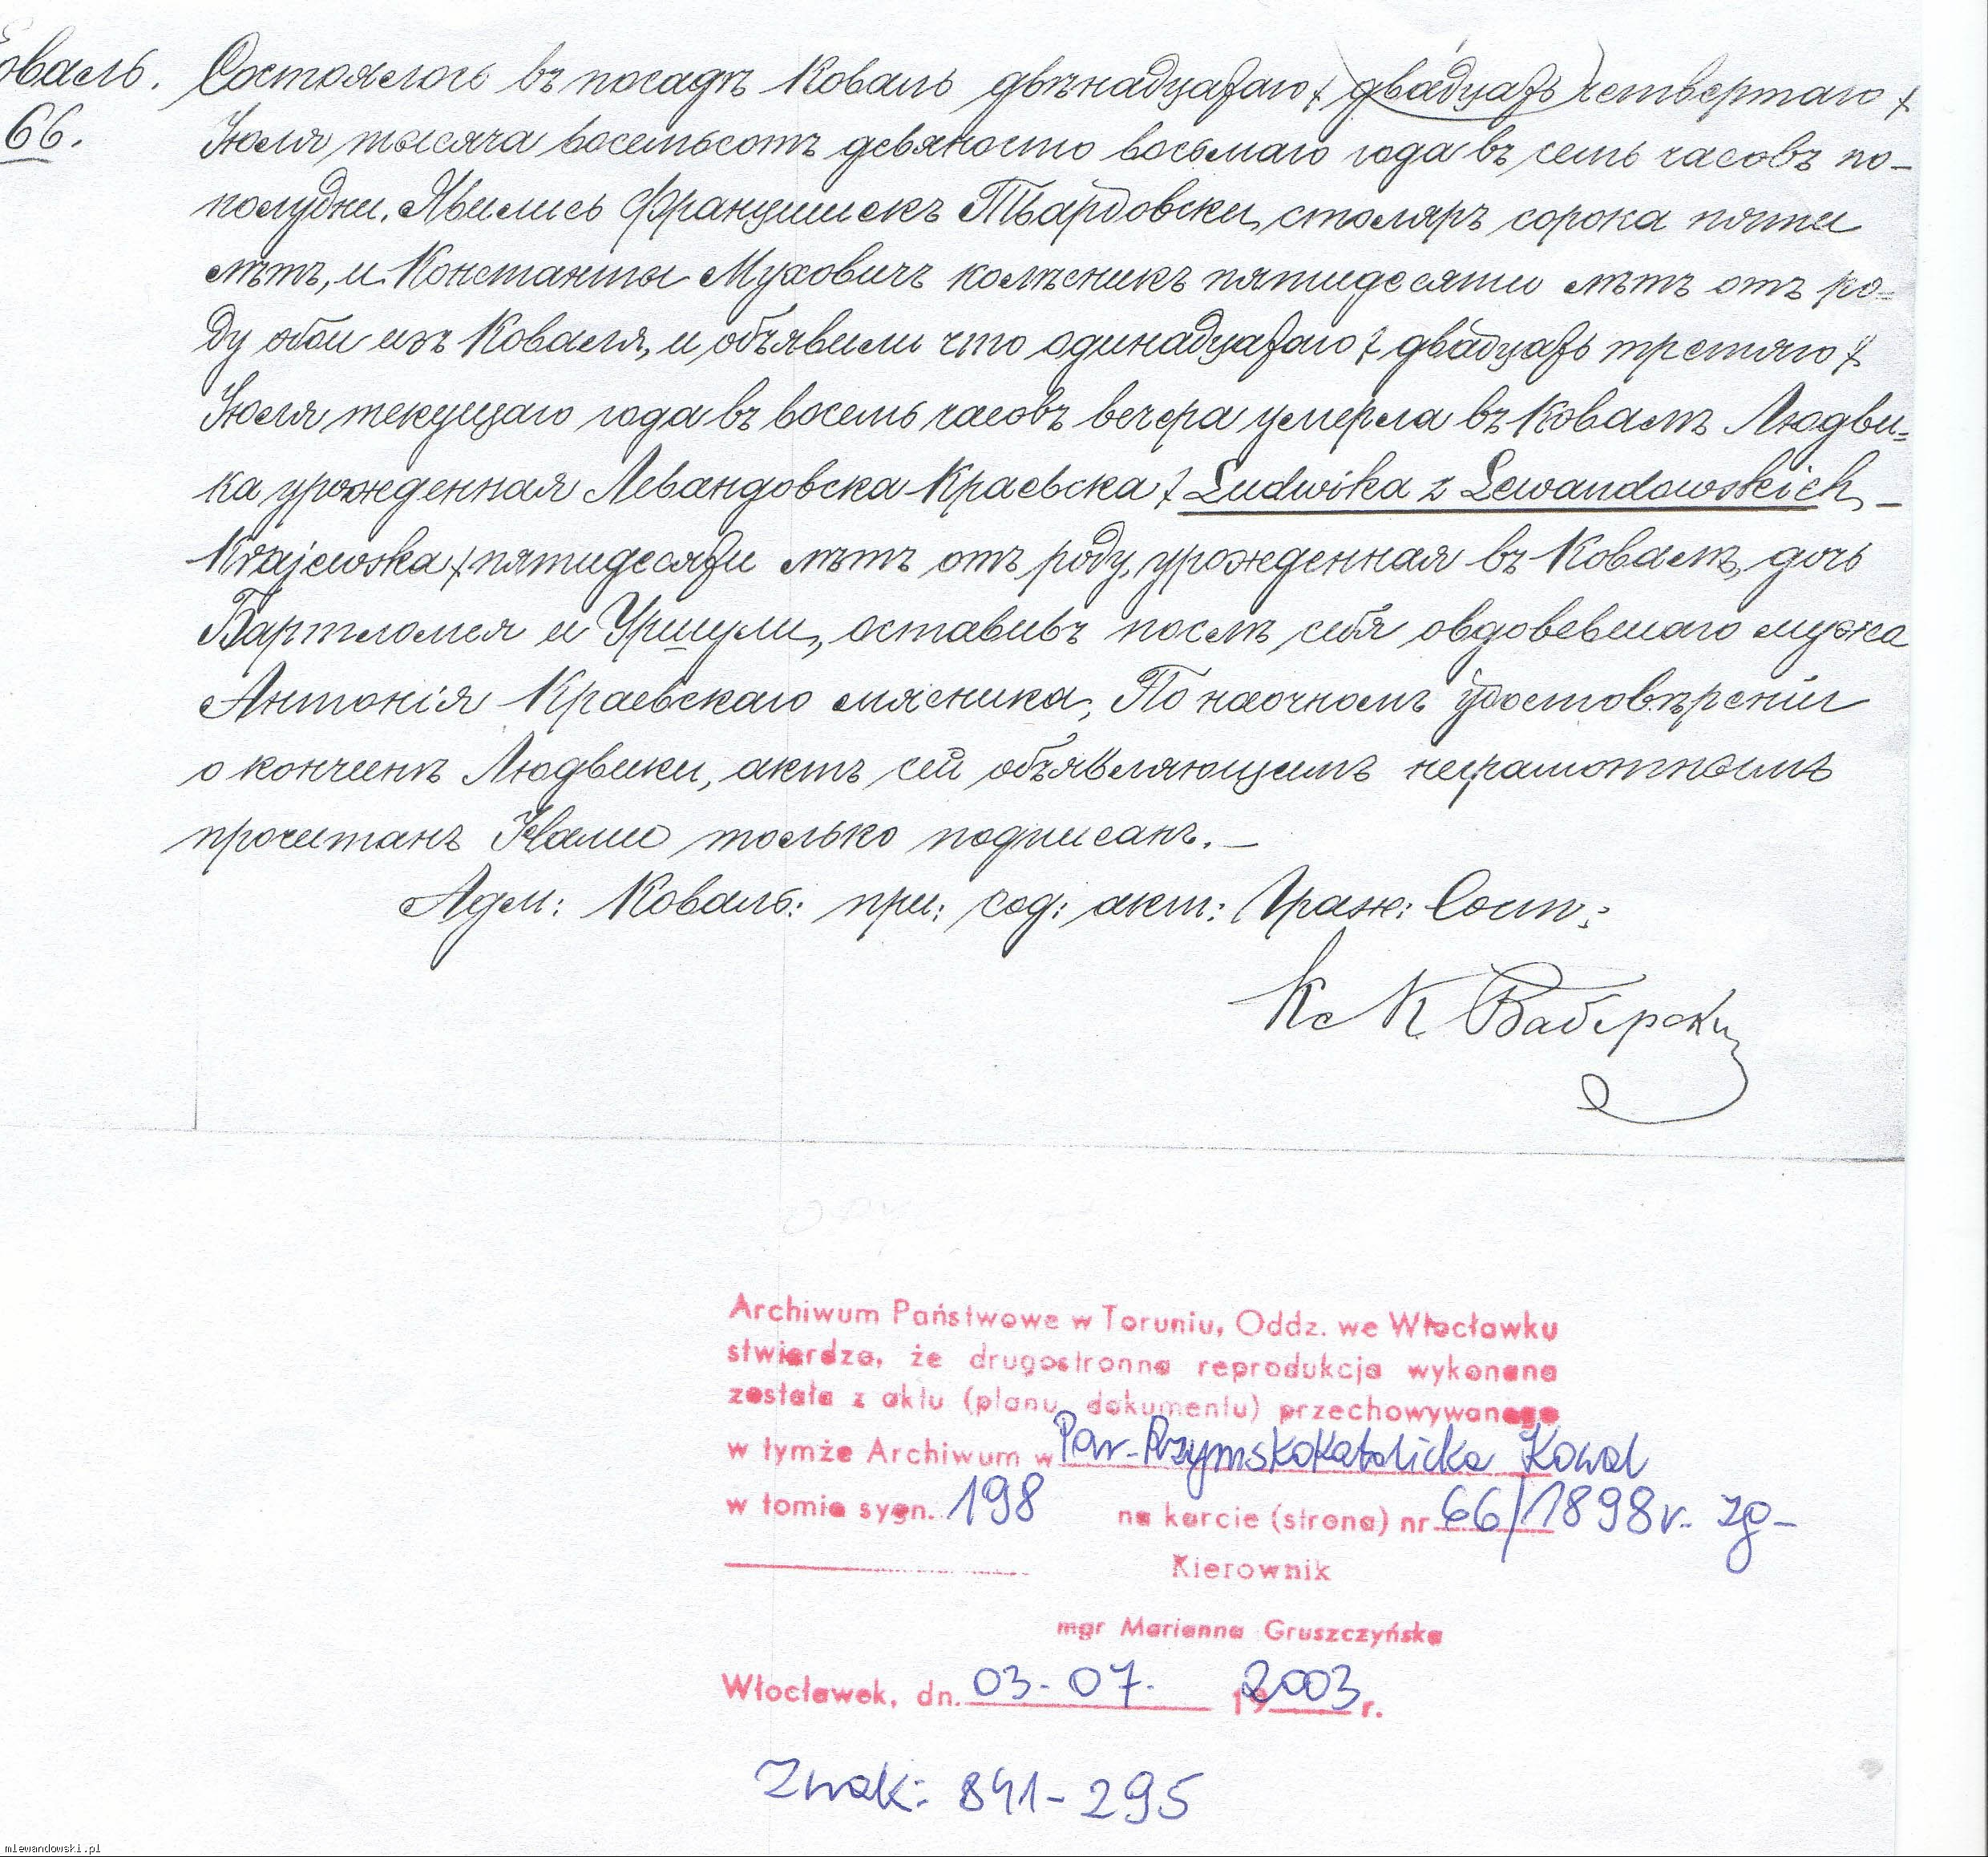 оваль.
66.
Состоялось въ посадѣ Коваль двѣнадцатаго / двадцать четвертаго /
Іюля тысяча восемьсотъ девяносто восьмаго года въ семь часовъ по-
полудни. Явились Францишекъ Твардовски, столяръ сорока пяти
лѣтъ, и Константы Муховичъ колѣсникъ пятидесяти лѣтъ отъ ро=
ду обои изъ Коваля, и объявили что одинадцатаго / двадцать третяго /
Іюля текущаго года въ восемь часовъ вечера умерла въ Ковалѣ Людви=
ка урожденная Левандовска Краевска / Ludwika z Lewandowskich -
Krajewska / пятидесяти лѣтъ отъ роду, урожденная въ Ковалѣ, дочь
Бартломея и Уршули, оставивъ послѣ себя овдовевшаго мужа
Антонія Краевскаго мясника, По наочномъ удостовѣреніи
о кончинѣ Людвики, актъ сей объявляющимъ неграмотнымъ
прочитанъ Нами только подписанъ. -
Адм: Коваль: при: сод: акт: Граж: Сост:
Кс К
Archiwum Państwowe w Toruniu, Oddz. we Włocławku
stwierdza, że drugostronna reprodukcja wykonana
została z aktu (planu, dokumentu) przechowywanego
w tymże Archiwum w Par. Rzymskokatolicka Kowal
w tomie sygn. 198 na karcie (strona) nr 66/1898r. zg-
Kierownik
mgr Marianna Gruszczyńska
Włocławek, dn. 03-07. 2003 r.
Znak: 841-295
mlewandowski.pl